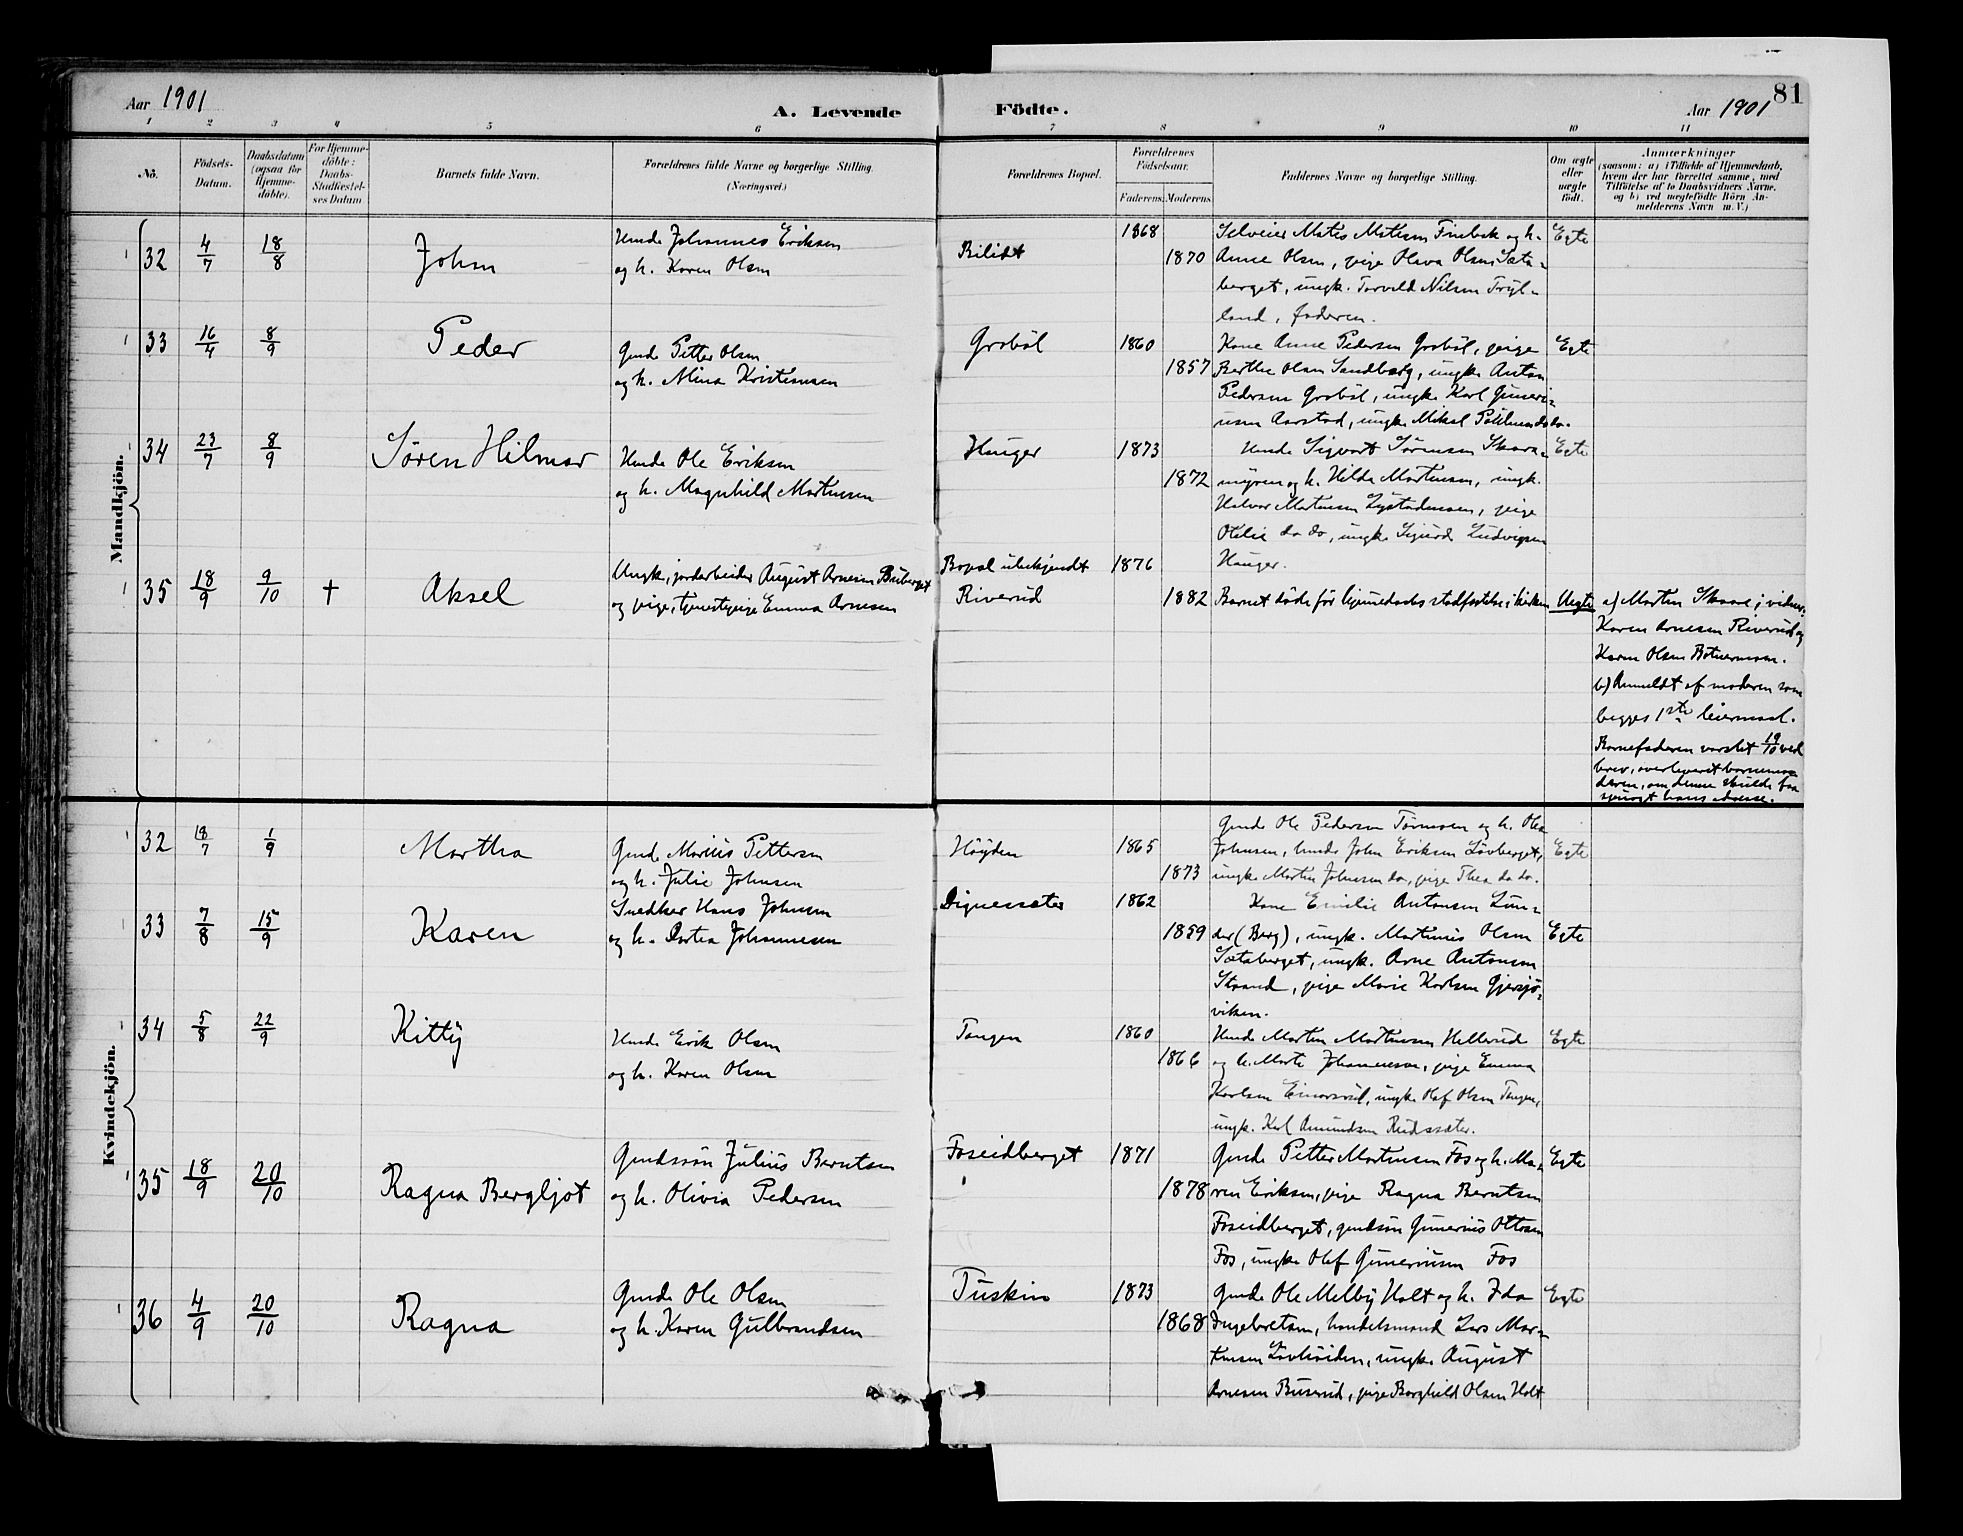 81
Aar 1901
A. Levende Födte.
Aar 1901
1 2 3 4 5 6 7 8 9 10 11
No.
Födsels-
Datum.
Daabsdatum
(ogsaa for
Hjemme-
döbte).
For Hjemme-
döbte:
Daabs-
Stadfæstel-
ses Datum
Barnets fulde Navn.
Forældrenes fulde Navne og borgerlige Stilling.
(Næringsvei.)
Forældrenes Bopæl.
Forældrenes
Födselsaar.
Faderens. Moderens.
Faddernes Navne og borgerlige Stilling.
Om ægte
eller
uægte
födt.
Anmærkninger
(saasom: a) i Tilfælde af Hjemmedaab,
hvem der har forrettet samme, med
Tilföielse af to Daabsvidners Navne,
og b) ved uægtefödte Börn An-
melderens Navn m.V.)
Mandkjön.
32 4/7 18/8 John
Huusmd. Johannes Eriksen
og h. Karen Olsen
Bilidt 1868
1870
Selveier Mates Matesen Finbak og h.
Anne Olsen, pige Olava Olsen Sæta-
berget, ungk. Torvald Nilsen Tryl-
land, faderen.
Egte
33 16/4 8/9 Peder
Gmd. Petter Olsen
og h. Mina Kristensen
Grobøl 1860
1857
Kone Anne Pedersen Grobøl, pige
Berthe Olsen Sandberg, ungk. Anton
Pedersen Grobøl, ungk. Karl Guneri-
usen Aarstad, ungk. Mikal do.
Egte
34 23/7 8/9 Søren Hilmar
Hmd. Ole Eriksen
og h. Magnhild Martinsen
Hauger 1873
1872
Hmd. Sigvart Sørensen Skara-
myren og h. Hilda Martinsen, ungk.
Halvor Martinsen, pige
Otilie do do, ungk. Sigurd Ludvigsen
Hauger.
Egte
35 18/9 9/10 † Aksel
Ungk., jordarbeider August Arnesen Buberget
og pige, tjenestepige Emma Arnesen
Bopæl ubekjendt 1876
Riverud 1882
Barnet døde før hjemmedaabs stadfæstelse i kirken
Uegte
a) Martin Skaare; vidner:
Karen Arnesen Riverud og
Karen Olsen Botnermoen.
b) Anmeldt af moderen som
begges 1ste leiermaal.
Barnefaderen varslet 19/10 ved
brev, overleveret barnemo-
deren, om denne skulde faa
spurgt hans adresse.
Kvindekjön.
32 18/7 1/9 Martha
Gmd. Marius Pettersen
og h. Julie Johnsen
Høyden 1865
1873
Gmd. Ole Pedersen Tørmoen og h. Olea
Johnsen, hmd. John Eriksen Løvberget,
ungk. Martin Johnsen do, pige Thea do do.
Egte
33 7/8 15/9 Karen
Snedker Hans Johnsen
og h. Dortea Johannesen
Dignessæter 1862
1859
Kone Emilie Antonsen Lun-
der (Berg), ungk. Martinius Olsen
Sætaberget, ungk. Arne Antonsen
Strand, pige Marie Karlsen Gjersjø-
viken.
Egte
34 5/8 22/9 Kitty
Hmd. Erik Olsen
og h. Karen Olsen
Tangen 1860
1866
Hmd. Martin Martinsen Hellerud
og h. Marte Johannesen, pige Emma
Karlsen Einarsrud, ungk. Olaf Olsen Tangen,
ungk. Karl Amundsen Rudssæter.
Egte
35 18/9 20/10 Ragna Bergljot
Gmdssøn Julius Berntsen
og h. Olivia Pedersen
Foseidberget 1871
1878
Gmd. Petter Martinsen Fos og h. Ma-
ren Eriksen, pige Ragna Berntsen
Foseidberget, gmdssøn Gunerius Ottosen
Fos, ungk. Olaf Guneriusen Fos
Egte
36 4/9 20/10 Ragna
Gmd. Ole Olsen
og h. Karen Gulbrandsen
Tuskin 1873
1868
Gmd. Ole Melby Holt og h. Ida
Ingebretsen, handelsmand Lars Mar-
tinsen Løvhøiden, ungk. August
Arnesen Buserud, pige Borghild Olsen Holt
Egte